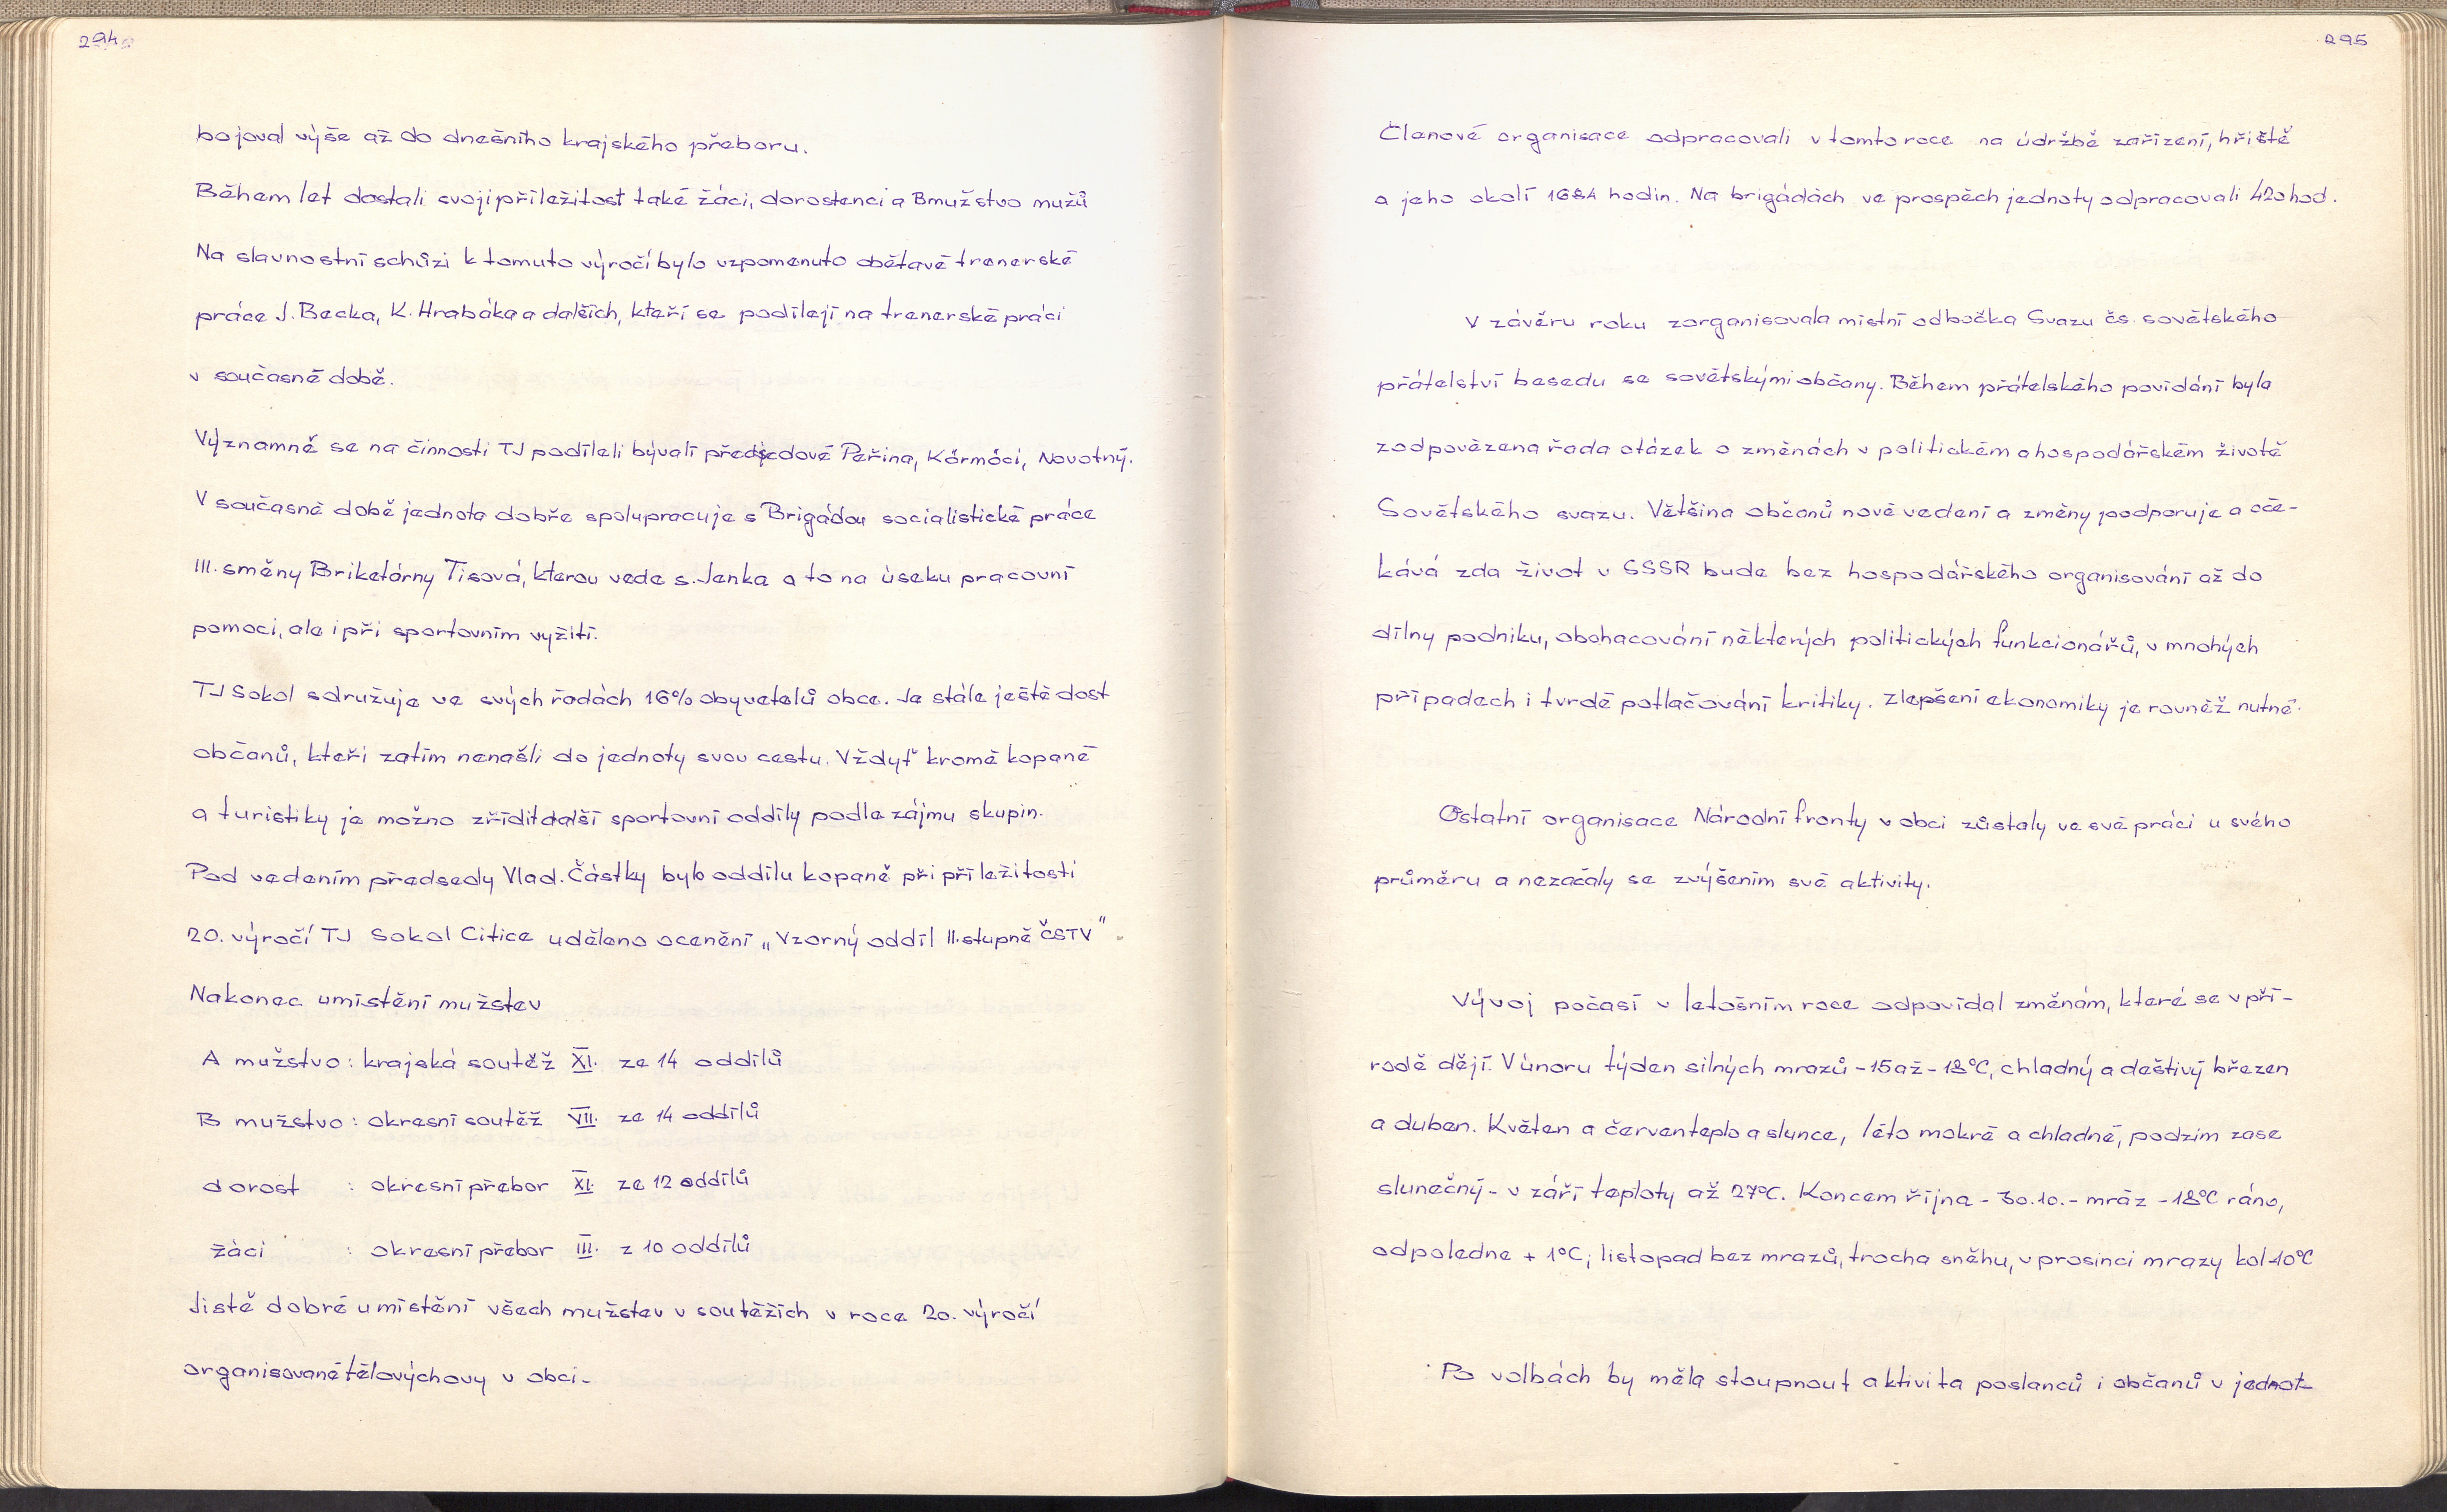 294
bojoval výše až do dnešního krajského přeboru.
Během let dostali svoji příležitost také žáci, dorostenci a B mužstvo mužů
Na slavnostní schůzi k tomuto výročí bylo vzpomenuto obětavé trenerské
práce J. Becka, K. Hrabáka a dalších, kteří se podílejí na trenerské práci
v současné době.
Významně se na činnosti TJ podíleli bývalí předsedové Peřina, Körmöci, Novotný.
V současné době jednota dobře spolupracuje s Brigádou socialistické práce
III. směny Briketárny Tisová, kterou vede s. Jenka a to na úseku pracovní
pomoci, ale i při sportovním vyžití.
TJ Sokol sdružuje ve svých řadách 16% obyvatelů obce. Je stále ještě dost
občanů, kteří zatím nenašli do jednoty svou cestu. Vždyť kromě kopané
a turistiky je možno zřídit další sportovní oddíly podle zájmu skupin.
Pod vedením předsedy Vlad. Částky bylo oddílu kopané při příležitosti
20. výročí TJ Sokol Citice uděleno ocenění „Vzorný oddíl II. stupně ČSTV".
Nakonec umístění mužstev
A mužstvo : krajská soutěž XI. ze 14 oddílů
B mužstvo : okresní soutěž VII. ze 14 oddílů
dorost : okresní přebor XI. ze 12 oddílů
žáci : okresní přebor III. z 10 oddílů
Jistě dobré umístění všech mužstev v soutěžích v roce 20. výročí
organisované tělovýchovy v obci.
295
Členové organisace odpracovali v tomto roce na údržbě zařízení, hřiště
a jeho okolí 1684 hodin. Na brigádách ve prospěch jednoty odpracovali 420 hod.
V závěru roku zorganisovala místní odbočka Svazu čs. sovětského
přátelství besedu se sovětskými občany. Během přátelského povídání byla
zodpovězena řada otázek o změnách v politickém a hospodářském životě
Sovětského svazu. Většina občanů nové vedení a změny podporuje a oče-
kává zda život v SSSR bude bez hospodářského organisování až do
dílny podniku, obohacování některých politických funkcionářů, v mnohých
případech i tvrdé potlačování kritiky. Zlepšení ekonomiky je rovněž nutné.
Ostatní organisace Národní fronty v obci zůstaly ve své práci u svého
průměru a nezačaly se zvýšením své aktivity.
Vývoj počasí v letošním roce odpovídal změnám, které se v pří-
rodě dějí. V únoru týden silných mrazů -15 až -18°C, chladný a deštivý březen
a duben. Květen a červen teplo a slunce, léto mokré a chladné, podzim zase
slunečný - v září teploty až 27°C. Koncem října - 30.10. - mráz -18°C ráno,
odpoledne + 1°C; listopad bez mrazů, trocha sněhu, v prosinci mrazy kol -10°C
Po volbách by měla stoupnout aktivita poslanců i občanů v jednot-